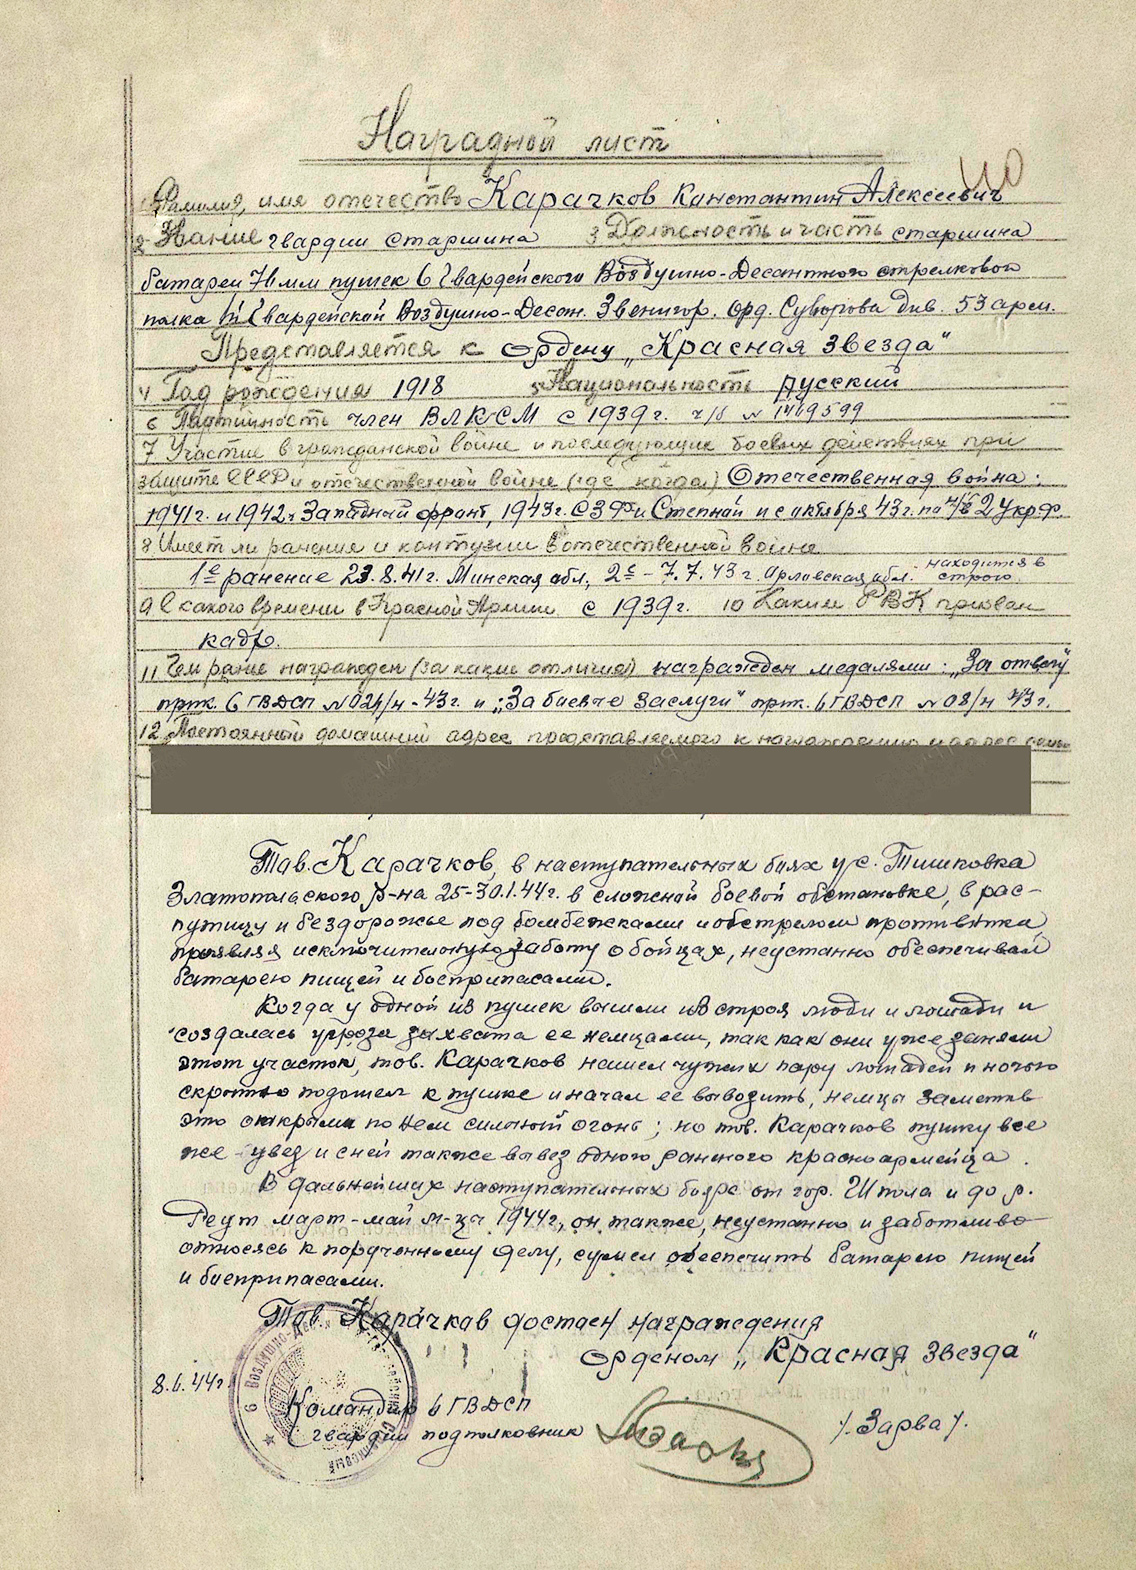 Наградной лист
110
1 Фамилия, имя отчество Карачков Константин Алексеевич
2 Звание гвардии старшина 3 Должность и часть старшина
батареи 76 мм пушек 6 Гвардейского Воздушно-Десантного стрелкового
полка Гвардейской Воздушно-Десан. Звенигор. Орд. Суворова див. 53 арм.
Представляется к Ордену „Красная Звезда"
4 Год рождения 1918 5 Национальность русский
6 Партийность член ВЛКСМ с 1939 г. ч/б № 1419599
7 Участие в гражданской войне и последующие боевых действиях при
защите СССР и отечественной войне (где когда) Отечественная война:
1941 г. и 1942 г. Западный фронт, 1943 г. СЗФ и Степной и с октября 43 г. по 2 Укр.Ф.
8 Имеет ли ранения и контузии в отечественной войне
1е ранение 23.8.41 г. Минская обл., 2е - 7.7.43 г. Орловская обл. находится в
строю.
9 С какого времени в Красной Армии с 1939 г. 10 Каким РВК призван
кадр.
11 Чем ранее награжден (за какие отличия) награжден медалями: „За отвагу"
прик. 6 ГВДСП № 024/н - 43 г. и „За боевые заслуги" прик. 6 ГВДСП № 08/н 43 г.
12 Постоянный домашний адрес представляемого к награждению и адрес семьи
Тов. Карачков, в наступательных боях у с. Тишковка
Златопольского р-на 25-30.1.44 г. в сложной боевой обстановке, в рас-
путицу и бездорожье под бомбежками и обстрелом противника,
проявляя исключительную заботу о бойцах, неустанно обеспечивал
батарею пищей и боеприпасами.
Когда у одной из пушек вышли из строя люди и лошади и
создалась угроза захвата ее немцами, так как они уже заняли
этот участок, тов. Карачков нашел чужих пару лошадей и ночью
скрытно подошел к пушке и начал ее выводить, немцы заметив
это открыли по нем сильный огонь; но тов. Карачков пушку все
же увез и с ней также вывез одного раненого красноармейца.
В дальнейших наступательных боях от гор. Шпола и до р.
Реут март-май м-ца 1944 г., он также, неустанно и заботливо
относясь к порученному делу, сумел обеспечить батарею пищей
и боеприпасами.
Тов. Карачков достоен награждения
Орденом „Красная Звезда"
8.6.44 г.
Командир 6 ГВДСП
гвардии подполковник /Зарва/.